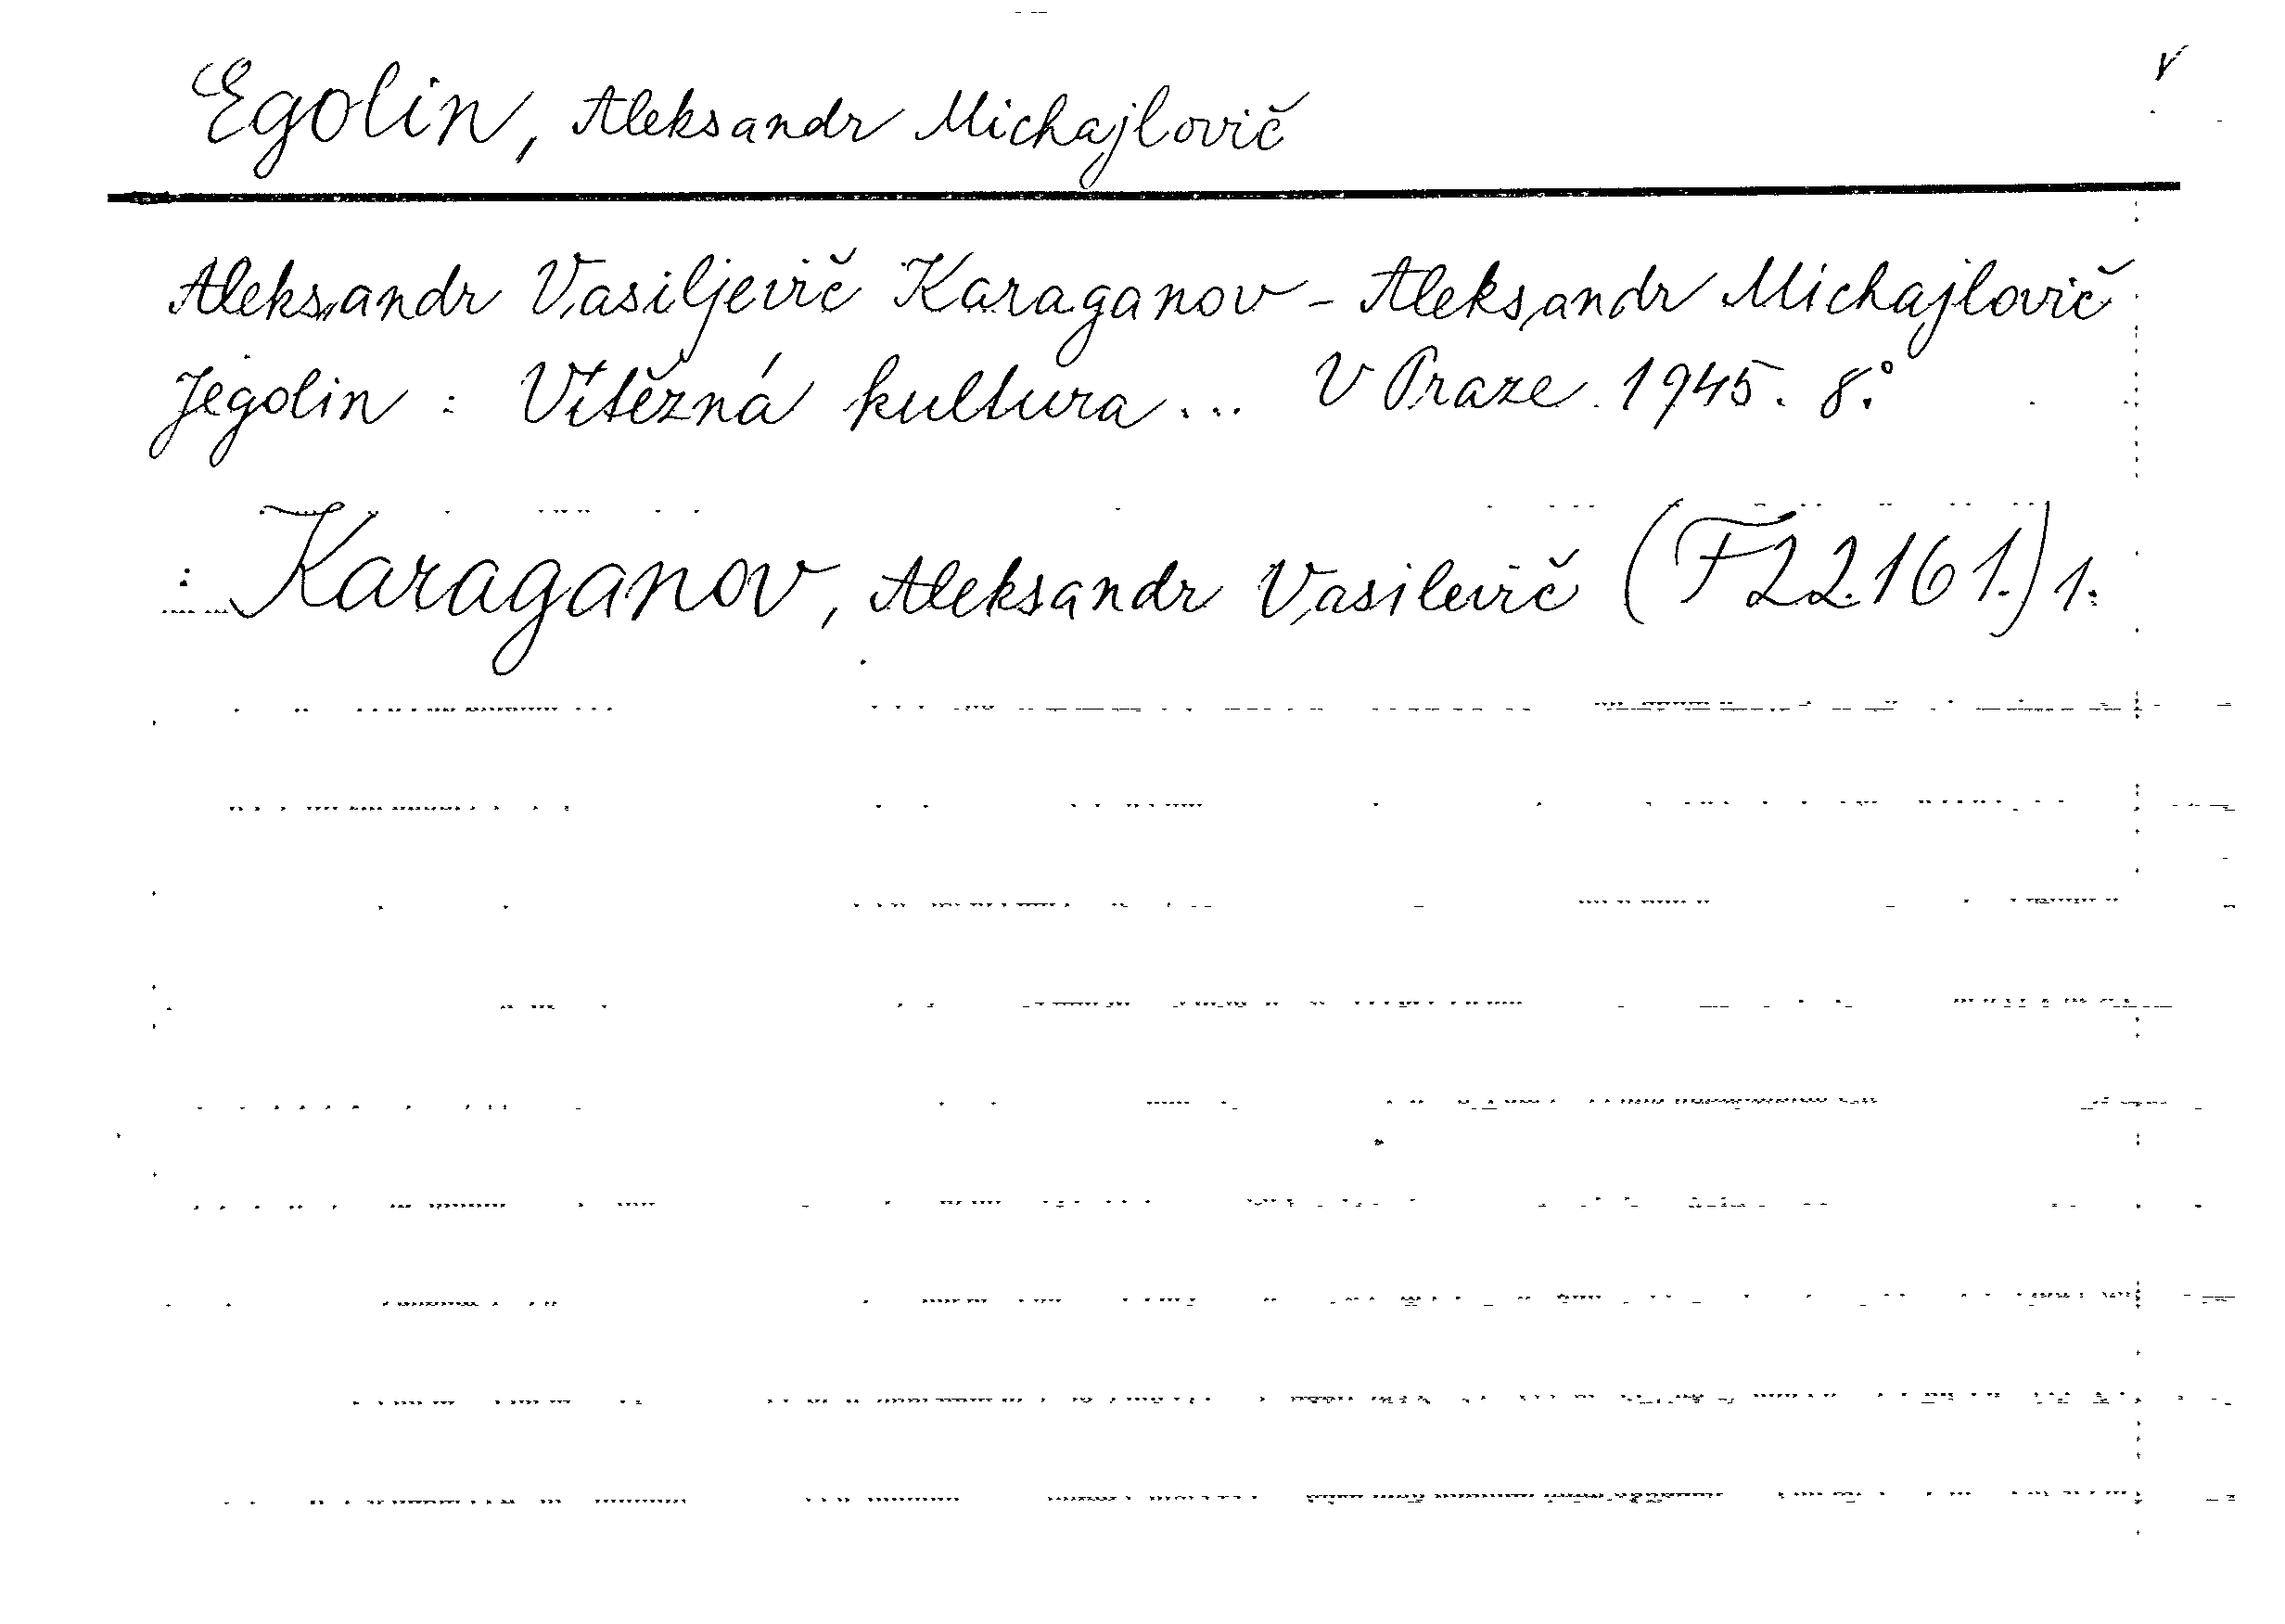 Egolin, Aleksandr Michajlovič
Aleksandr Vasiljevič Karaganov - Aleksandr Michajlovič
Jegolin : Vítězná kultura... V Praze 1945. 8.°
: Karaganov, Aleksandr Vasilevič (F 22.161.) 1.